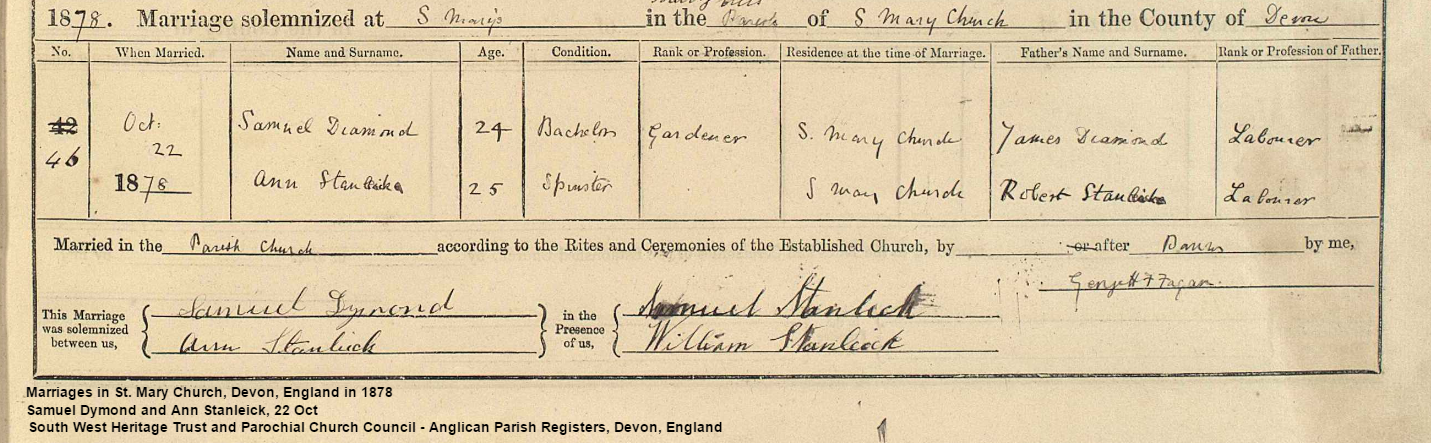 1878. Marriage solemnized at S Mary's in the Parish of S Mary Church in the County of Devon
No. When Married. Name and Surname. Age. Condition. Rank or Profession. Residence at the time of Marriage. Father's Name and Surname. Rank or Profession of Father.
42 Oct: Samuel Diamond 24 Bachelor Gardener S. Mary Church James Diamond Labourer
46 22
1878 Ann Stanleick 25 Spinster S Mary Church Robert Stanleick Labourer
Married in the Parish Church according to the Rites and Ceremonies of the Established Church, by or after Banns by me,
This Marriage was solemnized between us, Samuel Dymond in the Presence of us, Samuel Stanleick
Ann Stanleick William Stanleick
Marriages in St. Mary Church, Devon, England in 1878
Samuel Dymond and Ann Stanleick, 22 Oct
South West Heritage Trust and Parochial Church Council - Anglican Parish Registers, Devon, England